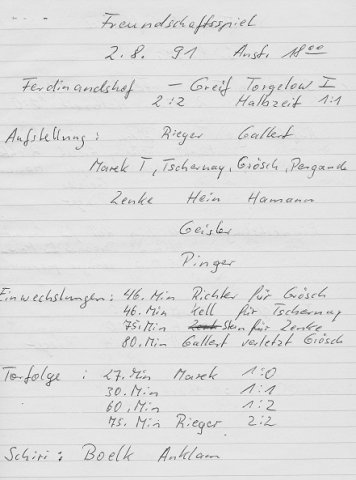 Freundschaftsspiel
2.8. 91 Anst. 18⁰⁰
Ferdinandshof - Greif Torgelow I
2:2 Halbzeit 1:1
Aufstellung: Rieger Gallert
Marek T, Tschernay, Grösch, Pergande
Zenke Hein Hamann
Geisler
Pinger
Einwechslungen: 46. Min Richter für Grösch
46. Min Kell für Tschernay
75. Min für Zenke
80. Min Gallert verletzt Grösch
Torfolge: 27. Min Marek 1:0
30. Min 1:1
60. Min 1:2
75. Min Rieger 2:2
Schiri: Boelk Anklam